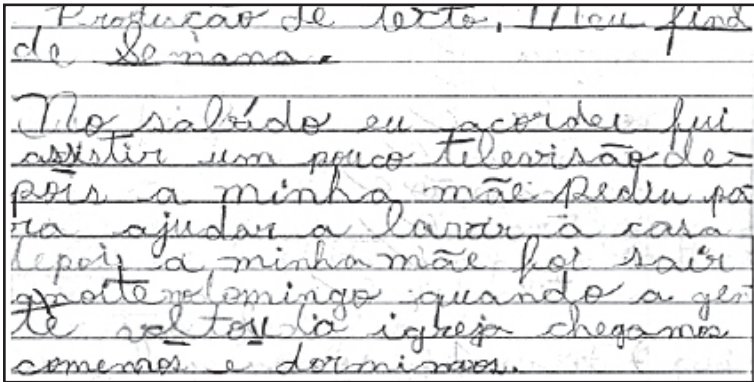 Produção de texto, Meu find
de Semana.
No sabádo eu acordei fui
assistir um pouco televisão de-
pois a minha mãe pediu pa
ra ajudar a lavar a casa
depois a minha mãe foi sair
anoite domingo quando a gen
te voltou da igreja chegamos
comemos e dormimos.